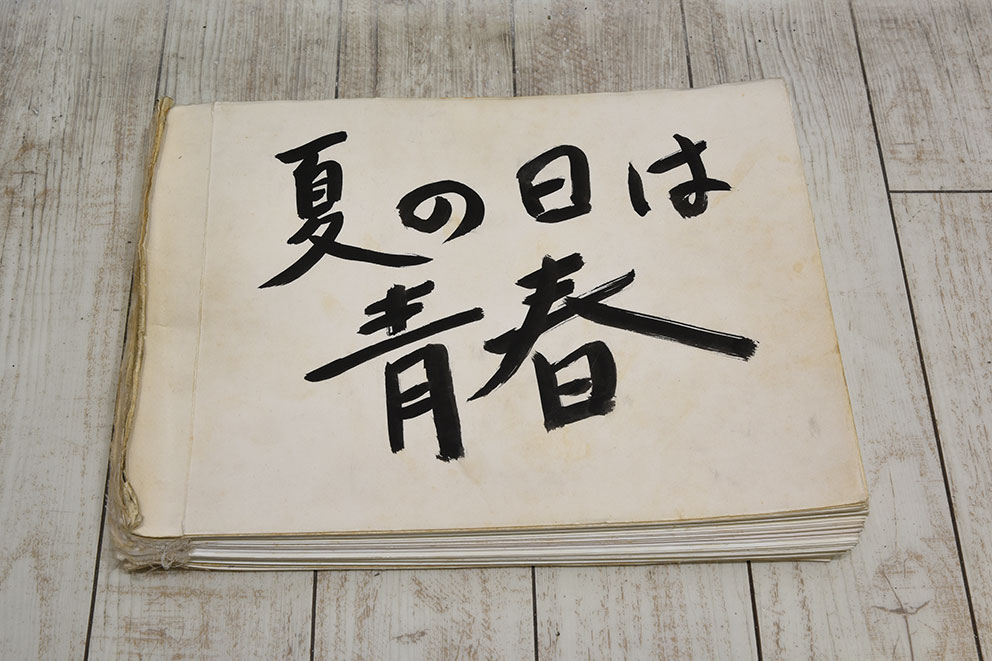 夏の日は
青春